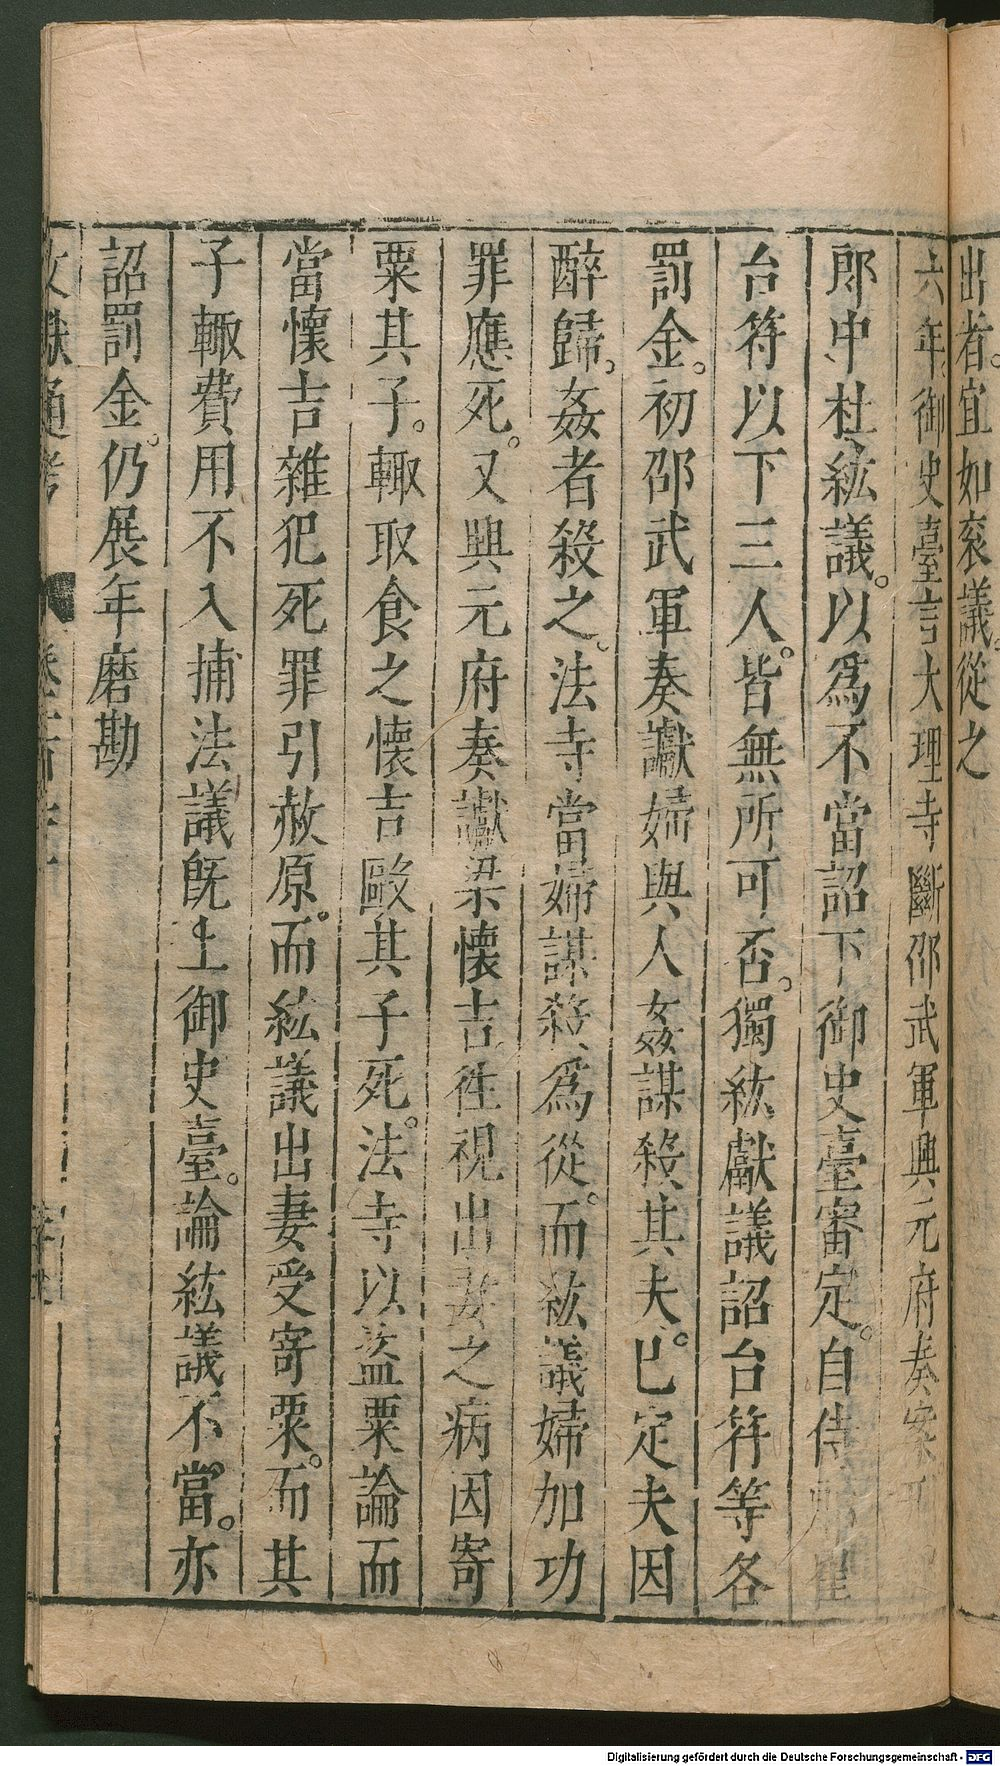 出者。宜如衮議從之
六年。御史臺言大理寺斷邵武軍興元府奏案
郎中杜紘議。以爲不當詔下御史臺審定。自侍郎崔
台符以下三人。皆無所可否。獨紘獻議詔台符等各
罰金。初邵武軍奏讞婦與人姦謀殺其夫。已定夫因
醉歸。姦者殺之。法寺當婦謀殺爲從。而紘議婦加功
罪應死。又興元府奏讞梁懷吉徃視出妻之病因寄
粟其子。輙取食之懷吉毆其子死。法寺以盜粟論而
當懷吉雜犯死罪引赦原。而紘議出妻受寄粟。而其
子輙費用不入捕法議旣上御史臺。論紘議不當。亦
詔罰金。仍展年磨勘
文獻通考
Digitalisierung gefördert durch die Deutsche Forschungsgemeinschaft - DFG